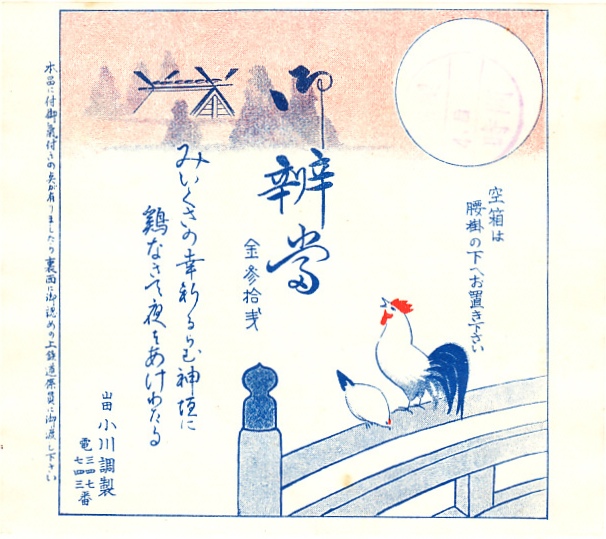 空箱は
腰掛の下へお置き下さい
御辨當
金参拾戋
みいくさの幸祈るらむ神垣に
鶏なきて夜をあけわたる
山田 小川調製
電三四七
七四三番
本品に付御氣付きの点が有りましたら裏面に御認めの上鉄道係員に御渡し下さい